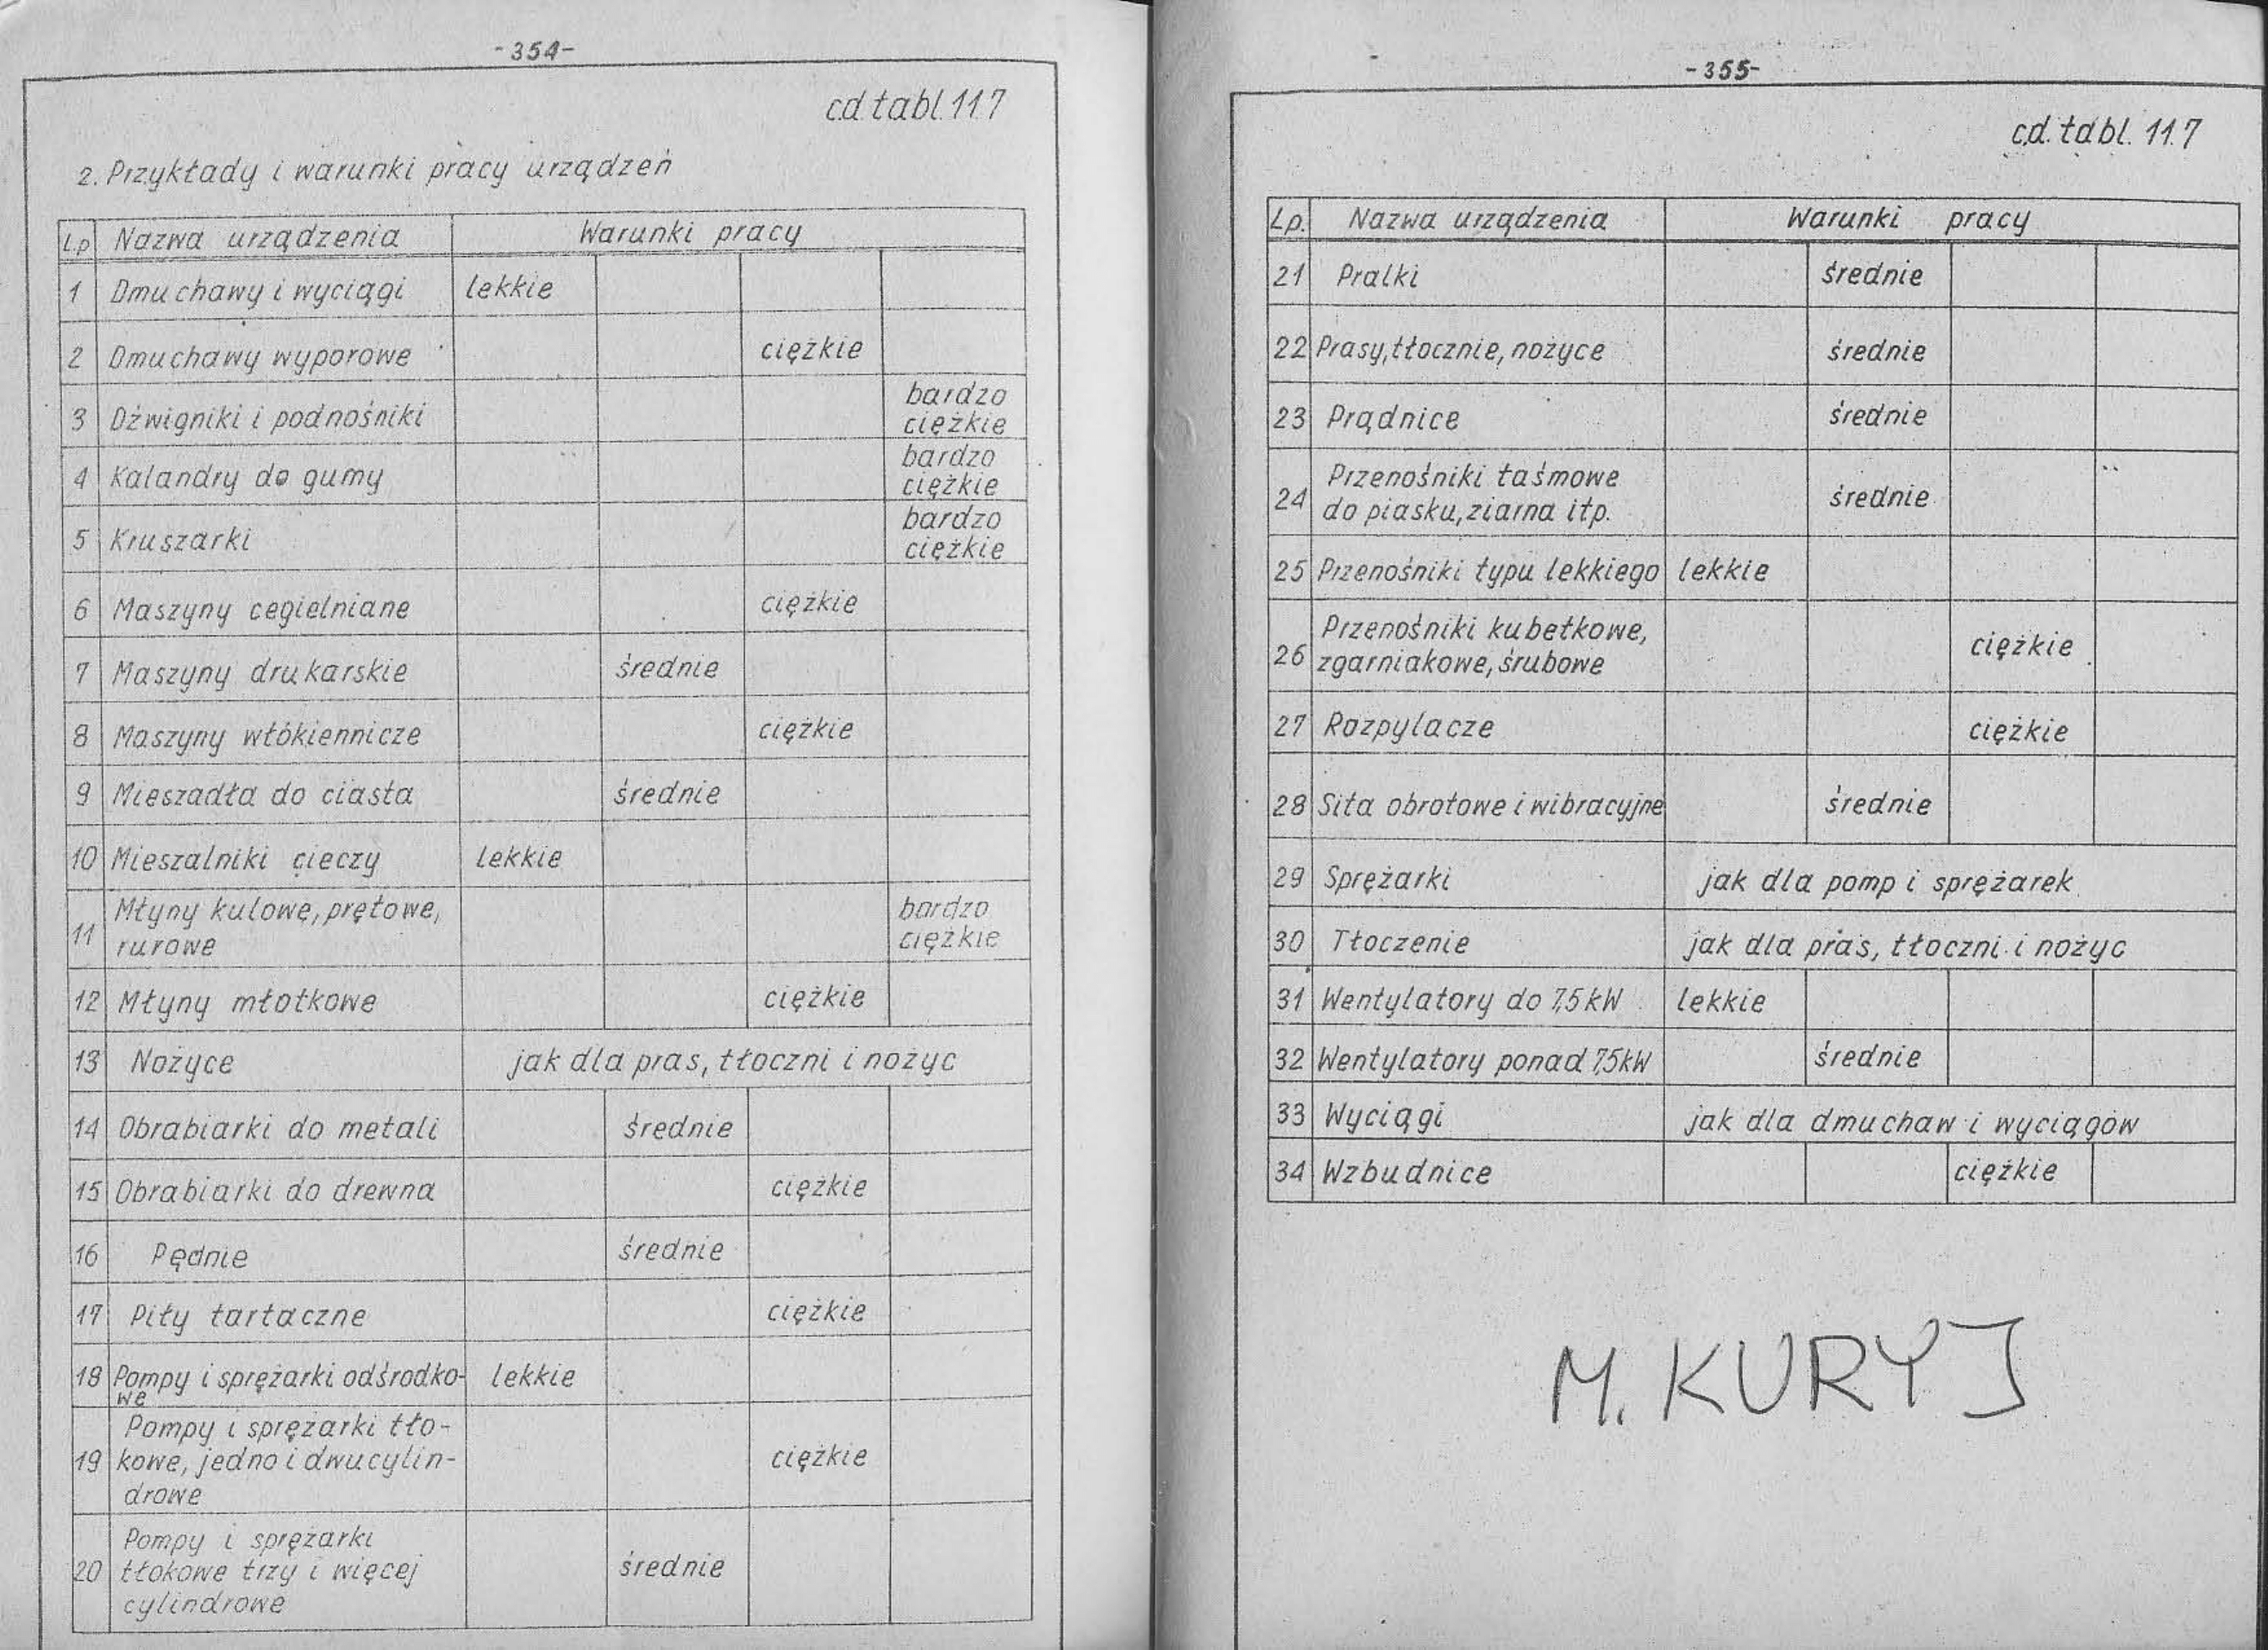 -354-
c.d. tabl. 11.7
2. Przykłady i warunki pracy urządzeń
Lp Nazwa urządzenia Warunki pracy
1 Dmuchawy i wyciągi lekkie
2 Dmuchawy wyporowe ciężkie
3 Dźwigniki i podnośniki bardzo
ciężkie
4 Kalandry do gumy bardzo
ciężkie
5 Kruszarki bardzo
ciężkie
6 Maszyny cegielniane ciężkie
7 Maszyny drukarskie średnie
8 Maszyny włókiennicze ciężkie
9 Mieszadła do ciasta średnie
10 Mieszalniki cieczy lekkie
11 Młyny kulowe, prętowe, bardzo
rurowe ciężkie
12 Młyny młotkowe ciężkie
13 Nożyce jak dla pras, tłoczni i nożyc
14 Obrabiarki do metali średnie
15 Obrabiarki do drewna ciężkie
16 Pędnie średnie
17 Piły tartaczne ciężkie
18 Pompy i sprężarki odśrodko- lekkie
we
Pompy i sprężarki tło-
19 kowe, jedno i dwucylin- ciężkie
drowe
Pompy i sprężarki
20 tłokowe trzy i więcej średnie
cylindrowe
-355-
c.d. tabl. 11.7
Lp. Nazwa urządzenia Warunki pracy
21 Pralki średnie
22 Prasy, tłocznie, nożyce średnie
23 Prądnice średnie
24 Przenośniki taśmowe średnie
do piasku, ziarna itp.
25 Przenośniki typu lekkiego lekkie
26 Przenośniki kubełkowe, ciężkie
zgarniakowe, śrubowe
27 Rozpylacze ciężkie
28 Sita obrotowe i wibracyjne średnie
29 Sprężarki jak dla pomp i sprężarek
30 Tłoczenie jak dla pras, tłoczni i nożyc
31 Wentylatory do 7,5 kW lekkie
32 Wentylatory ponad 7,5kW średnie
33 Wyciągi jak dla dmuchaw i wyciągów
34 Wzbudnice ciężkie
M. KURYJ